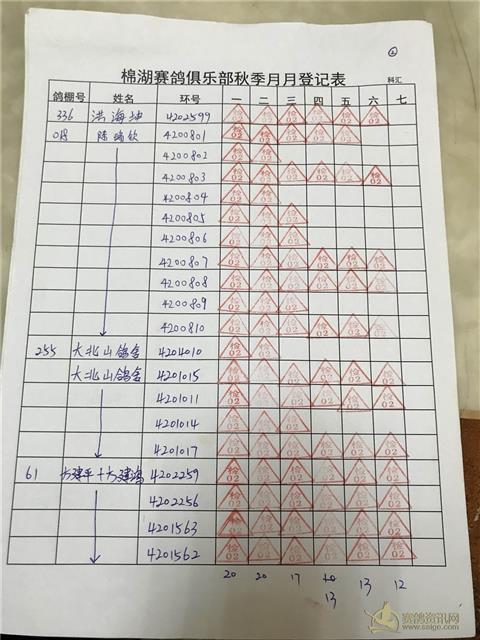 ②
棉湖赛鸽俱乐部秋季月月登记表
科汇
鸽棚号 姓名 环号 一 二 三 四 五 六 七
336 洪海坤 4202599 检02 检02 检02 检02 检02 检02
018 陈瑞钦 4200801 检02 检02 检02 检02 检02
4200802 检02 检02
4200803 检02 检02 检02 检02 检02 检02
4200804 检02 检02
4200805 检02 检02 检02
4200806 检02 检02 检02
4200807 检02 检02 检02 检02 检02 检02
4200808 检02 检02 检02 检02 检02 检02
4200809 检02 检02 检02
4200810 检02 检02 检02 检02 检02 检02
255 大北山鸽舍 4204010 检02 检02
大北山鸽舍 4201015 检02 检02 检02 检02 检02 检02
4201011 检02 检02 检02 检02 检02 检02
4201014 检02 检02 检02
4201017 检02 检02 检02 检02 检02 检02
61 方建平+方建鸿 4202259 检02 检02 检02 检02 检02 检02
4202256 检02 检02 检02 检02 检02 检02
4201563 检02 检02 检02 检02 检02 检02
4201562 检02 检02 检02 检02 检02 检02
20 20 17 13 12
13
赛鸽资讯网
www.saige.com